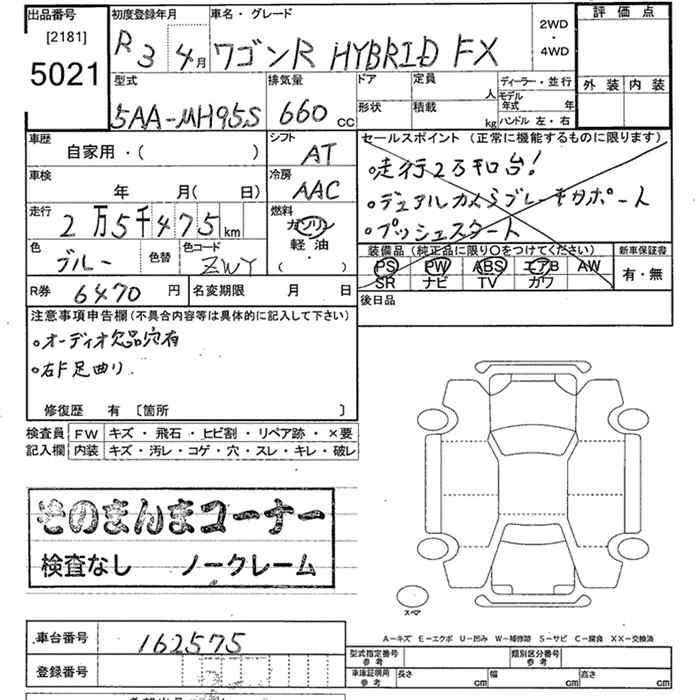 出品番号
[2181]
5021
初度登録年月
R3 4月
車名・グレード
ワゴンR HYBRID FX
2WD
・
4WD
評価点
外装 内装
型式
5AA-MH95S
排気量
660 cc
ドア
形状
定員
人
積載
kg
ディーラー・並行
モデル
年式 年
ハンドル 左・右
車歴
自家用・( )
シフト
AT
車検
年 月( 日)
冷房
AAC
走行
2万5千475km
燃料
ガソリン
軽油
( )
色
ブルー
色替
色コード
ZWY
セールスポイント (正常に機能するものに限ります)
走行2万キロ台!
デュアルカメラブレーキサポート
プッシュスタート
装備品 (純正品に限り○をつけてください)
PS PW ABS エアB AW
SR ナビ TV カワ
新車保証書
有・無
R券 6470 円
名変期限 月 日
後日品
注意事項申告欄 (不具合内容等は具体的に記入して下さい)
オーディオ欠品穴有
右F足曲り
修復歴 有 〔箇所 〕
検査員
記入欄
FW キズ・飛石・ヒビ割・リペア跡・×要
内装 キズ・汚レ・コゲ・穴・スレ・キレ・破レ
そのまんまコーナー
検査なし ノークレーム
スペア
A-キズ E-エクボ U-凹み W-補修跡 S-サビ C-腐食 XX-交換済
車台番号 162575
登録番号
型式指定番号
参考
類別区分番号
参考
車庫証明用
参考
長さ cm
幅 cm
高さ cm